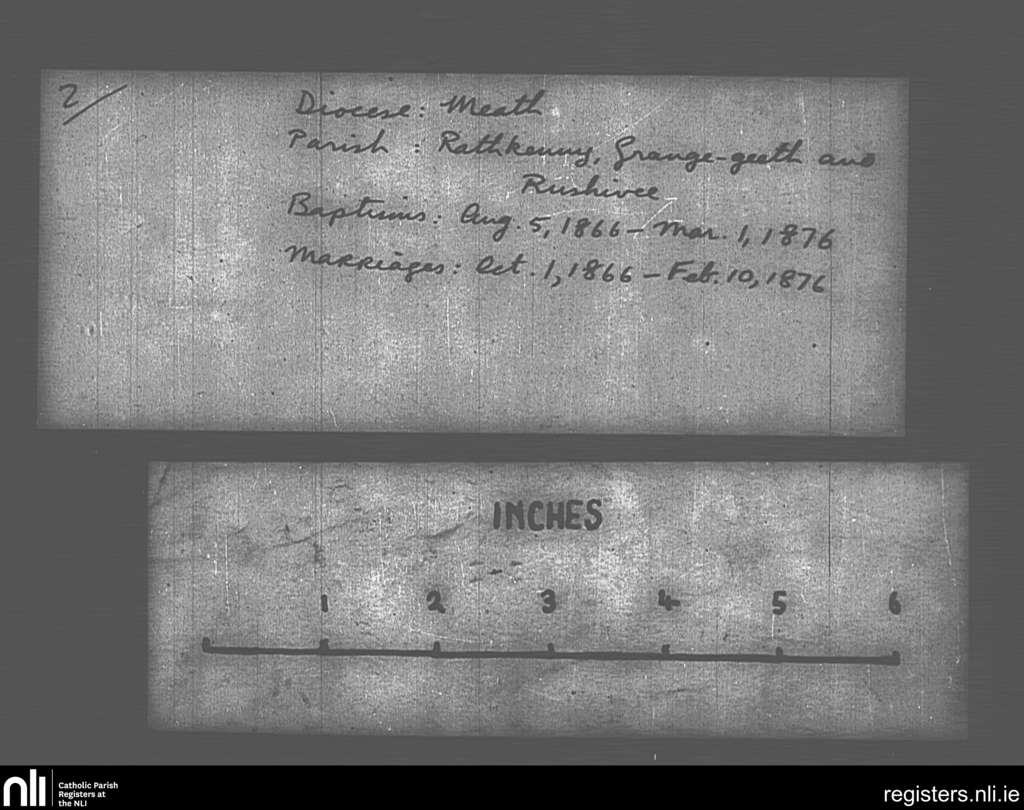 2/
Diocese: Meath
Parish : Rathkenny, Grange-geeth and
Rushwee
Baptisms: Aug. 5, 1866 – Mar. 1, 1876
Marriages: Oct. 1, 1866 – Feb. 10, 1876
INCHES
1 2 3 4 5 6
nli
Catholic Parish
Registers at
the NLI
registers.nli.ie